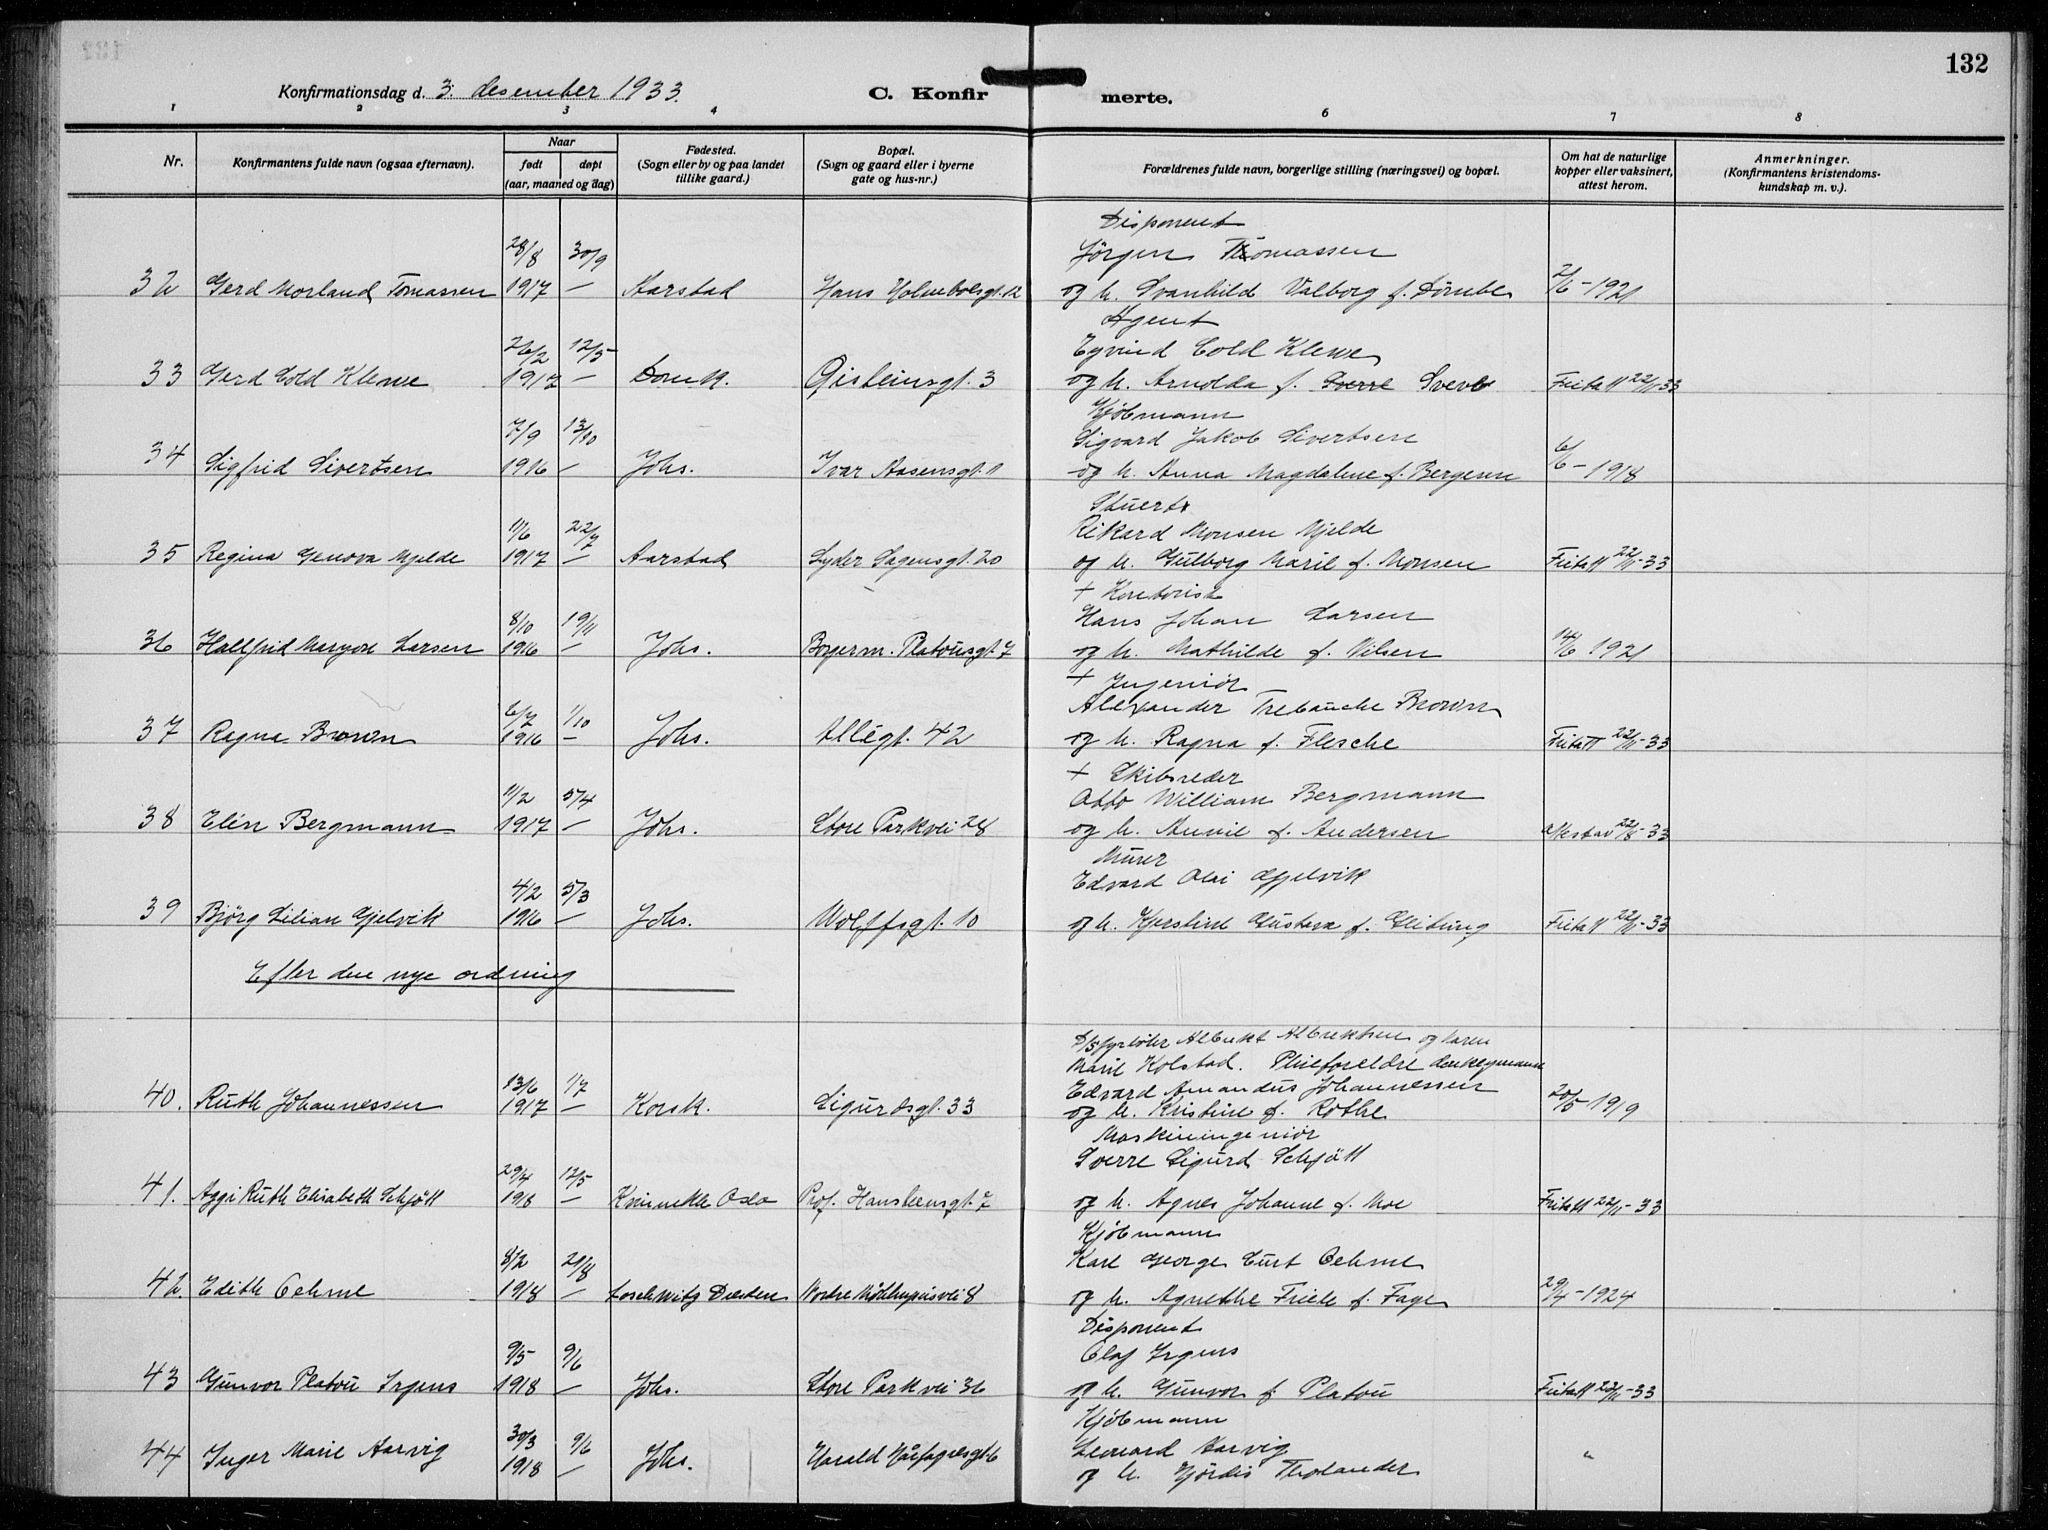 132
Konfirmationsdag d. 3. desember 1933.
C. Konfirmerte.
1 2 3 4 6 7 8
Nr.
Konfirmantens fulde navn (ogsaa efternavn).
Naar
født døpt
(aar, maaned og dag)
Fødested.
(Sogn eller by og paa landet
tillike gaard.)
Bopæl.
(Sogn og gaard eller i byerne
gate og hus-nr.)
Forældrenes fulde navn, borgerlige stilling (næringsvei) og bopæl.
Om hat de naturlige
kopper eller vaksinert,
attest herom.
Anmerkninger.
(Konfirmantens kristendoms-
kundskap m. v.).
Disponent
28/8 30/9 Jørgen Thomassen
32 Gerd Morland Tomassen 1917 — Aarstad Hans Holmboesgt. 12 og h. Svanhild Valborg f. 2/6 - 1921
Agent
26/2 12/5 Eyvind Cold Klewe
33 Gerd Cold Klewe 1917 — Domk. Gisleinsgt. 3 og h. Arnolda f. Fritatt 22/11-33
Kjøbmann
7/9 13/10 Sigvard Jakob Sivertsen
34 Sigfrid Sivertsen 1916 — Johs. Ivar Aasensgt. 1 og h. Anna Magdalene f. Bergesen 6/6 - 1918
Stuert
11/6 22/7 Rikard Monsen Mjelde
35 Regina Genova Mjelde 1917 — Aarstad Lyder Sagensgt. 20 og h. Gulborg Marie f. Monsen Fritatt 22/11-33
+ Kontorist
8/10 19/11 Hans Johan Larsen
36 Hallfrid Margon Larsen 1916 — Johs. Borgerm. Platousgt. 7 og h. Mathilde f. Nilsen 14/6 1921
+ Ingeniør
6/7 1/10 Alexander Brown
37 Ragna Brown 1916 — Johs. Allégt. 42 og h. Ragna f. Flesche Fritatt 22/11-33
+ Skibsreder
11/2 5/4 Otto William Bergmann
38 Elin Bergmann 1917 — Johs. Store Parkvei 28 og h. Annie f. Andersen 22/8-33
Murer
4/2 5/3 Edvard Olai Gjelvik
39 Bjørg Lilian Gjelvik 1916 — Johs. Wolffsgt. 10 og h. Kjerstine Gustava f. Fritatt 22/11-33
Efter den nye ordning
D/s fyrbøter Albrekt Albrektsen og Karen
Marie Kolstad. Pleieforeldre
13/6 1/7 Edvard Amandus Johannessen
40. Ruth Johannessen 1917 — Korsk. Sigurdsgt. 33 og h. Kristine f. Rothe 20/5-1919
Maskiningeniør
29/4 12/5 Sverre Sigurd Schjøtt
41. Aggi Ruth Elisabeth Schjøtt 1918 — Oslo Prof. Hansteensgt. 7 og h. Agnes Johanne f. Moe Fritatt 22/11-33
Kjøbmann
8/2 21/8 Karl George Curt Oehme
42. Edith Oehme 1918 — Loschwitz Dresden Nordre Møhlenprisvei 8 og h. Agnethe Friele f. Faye 29/4-1924
Disponent
9/5 9/6 Olaf Irgens
43 Gunvor Platou Irgens 1918 — Johs. Store Parkvei 36 og h. Gunvor f. Platou Fritatt 22/11-33
Kjøbmann
30/3 9/6 Leonard Aarvig
44 Inger Marie Aarvig 1918 — Johs. Harald Hårfagresgt. 6 og h. Hjørdis Tholander "